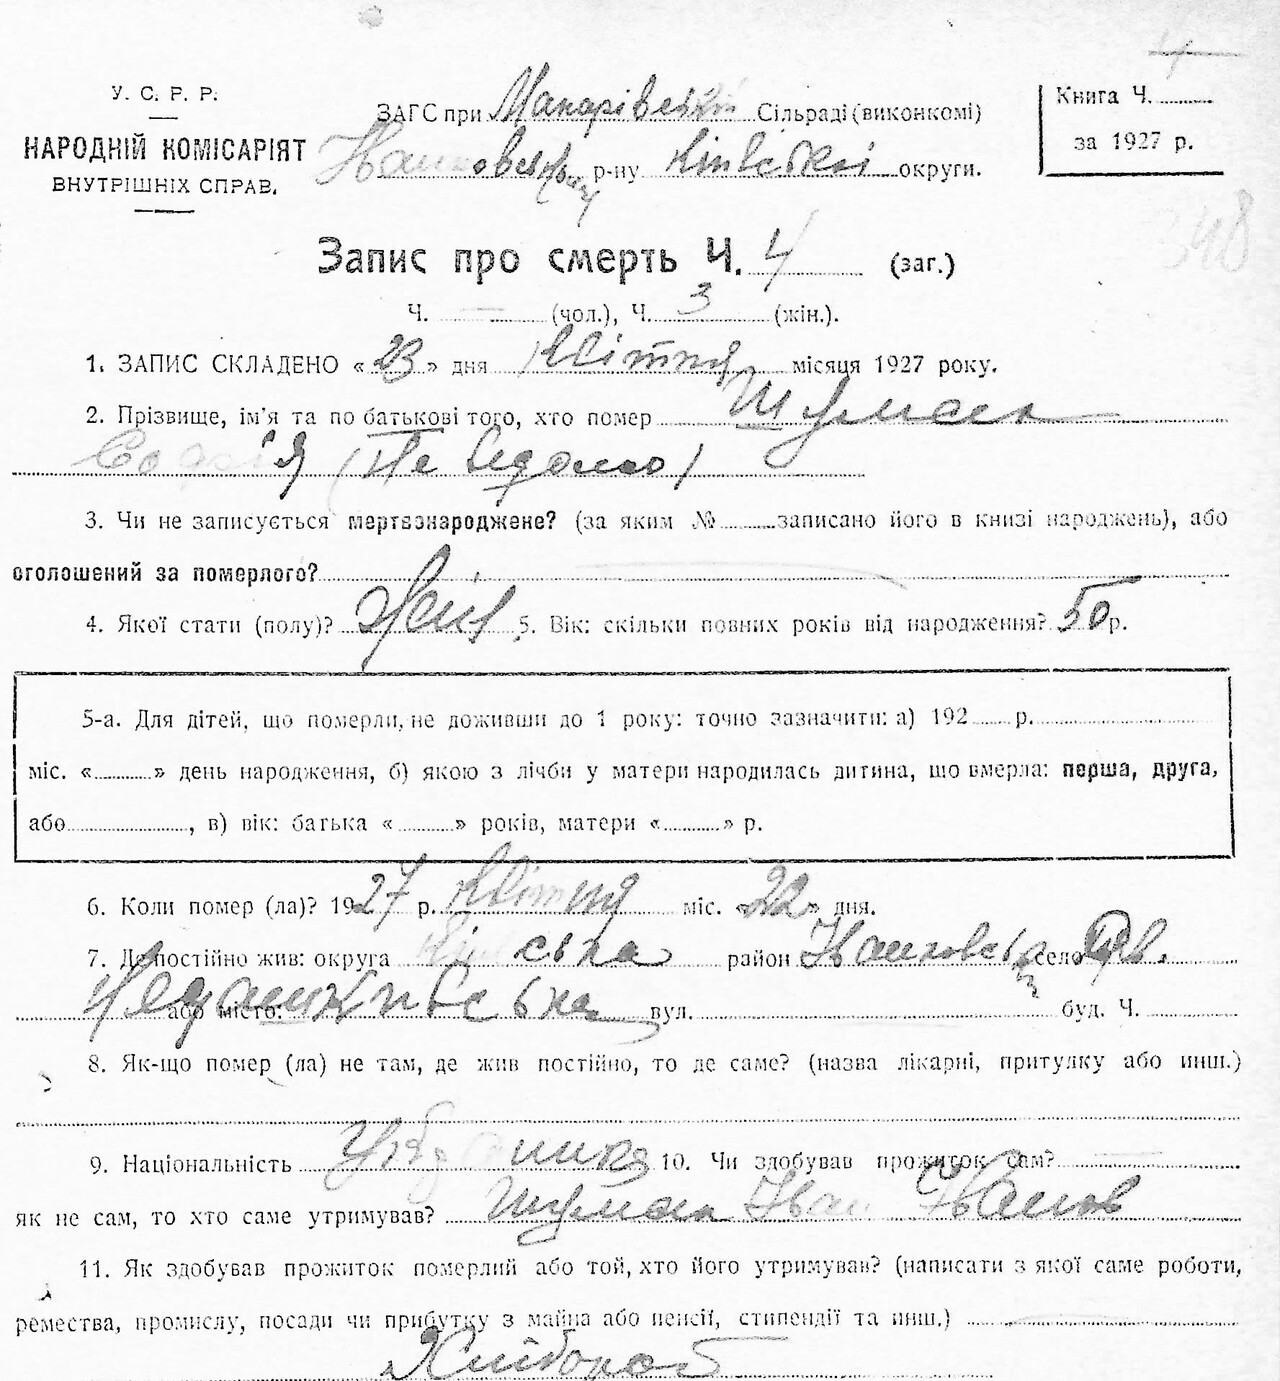 4
У. С. Р. Р.
НАРОДНІЙ КОМІСАРІЯТ
ВНУТРІШНІХ СПРАВ.
ЗАГС при Макарівській Сільраді (виконкомі)
р-ну Київської округи.
Книга Ч.
за 1927 р.
348
Запис про смерть Ч. 4 (заг.)
Ч. — (чол.), Ч. 3 (жін.).
1. ЗАПИС СКЛАДЕНО «23» дня Квітня місяця 1927 року.
2. Прізвище, ім'я та по батькові того, хто помер Шуман
Софія (Не відомо)
3. Чи не записується мертвонароджене? (за яким № записано його в книзі народжень), або
оголошений за померлого?
4. Якої стати (полу)? Жін 5. Вік: скільки повних років від народження? 50 р.
5-а. Для дітей, що померли, не доживши до 1 року: точно зазначити: а) 192 р.
міс. « » день народження, б) якою з лічби у матери народилась дитина, що вмерла: перша, друга,
або , в) вік: батька « » років, матери « » р.
6. Коли помер (ла)? 1927 р. Квітня міс. «22» дня.
7. Де постійно жив: округа Київська район село
або місто: вул. буд. Ч.
8. Як-що помер (ла) не там, де жив постійно, то де саме? (назва лікарні, притулку або инш.)
9. Національність 10. Чи здобував прожиток сам? —
як не сам, то хто саме утримував? Шуман Іван Іванов
11. Як здобував прожиток померлий або той, хто його утримував? (написати з якої саме роботи,
ремества, промислу, посади чи прибутку з майна або пенсії, стипендії та инш.)
Хлібороб